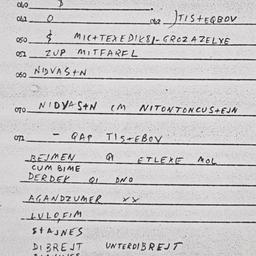 040
041 O 042 )TIS+EQBOV
050 $ MIC+TEXEDIK8J-GROZAZELYE
051 ZUP MITFARFL
060 NIDVAS+N
070 NIDVAS+N CM NITONTONCUS+EJN
071 - GAP TIS+EBOV
BEJMEN QI ETLEXE MOL
CUM BIME
DERDEK QI DNO
AGANDZUMER XX
LULOFIM
S+AJNES
DIBREJT UNTERDIBREJT